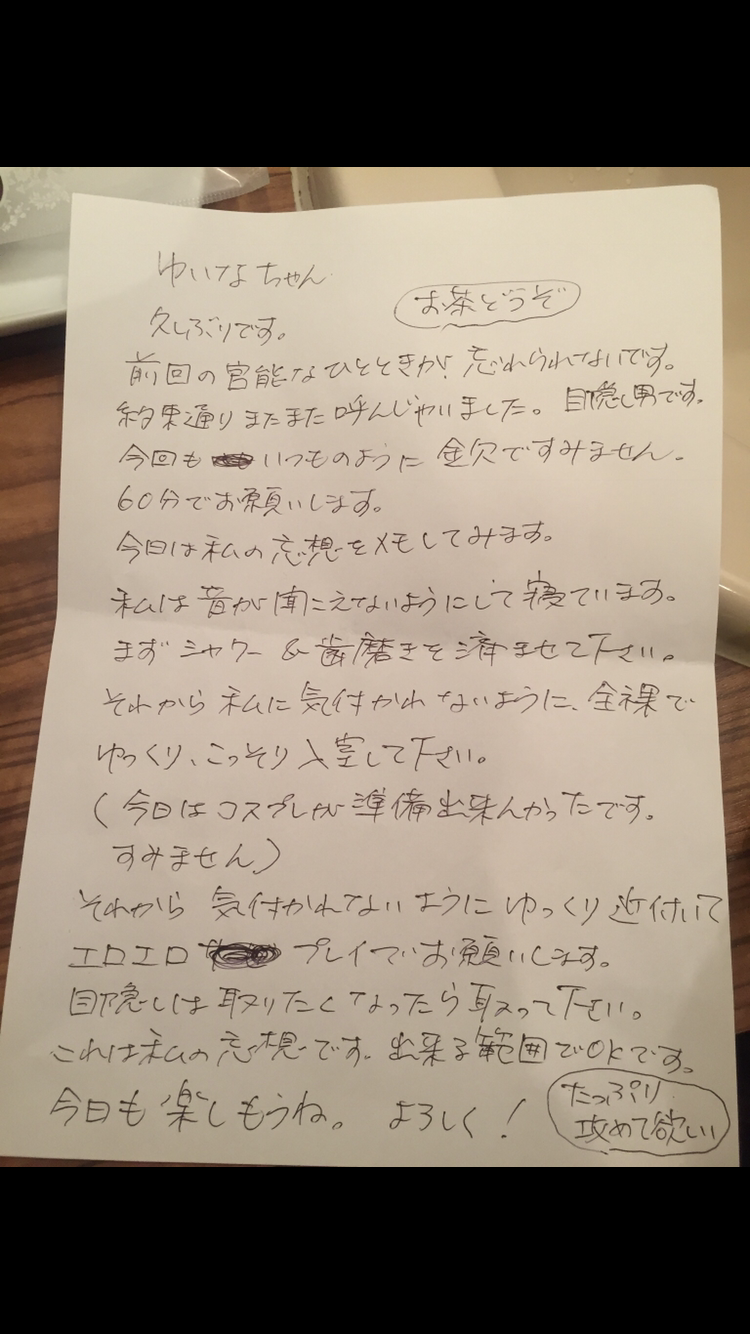 ゆいなちゃん
お茶どうぞ
久しぶりです。
前回の官能なひとときが! 忘れられないです。
約束通りまたまた呼んじゃいました。目隠し男です。
今回も いつものように金欠ですみません。
60分でお願いします。
今日は私の妄想をメモしてみます。
私は音が聞こえないようにして寝ています。
まずシャワー&歯磨きを済ませて下さい。
それから私に気付かれないように、全裸で
ゆっくり、こっそり入室して下さい。
(今日はコスプレが準備出来んかったです。
すみません)
それから気付かれてないようにゆっくり近付いて
エロエロ プレイでお願いします。
目隠しは取りたくなったら取って下さい。
これは私の妄想です。出来る範囲でOKです。
今日も楽しもうね。 よろしく!
たっぷり
攻めて欲しい